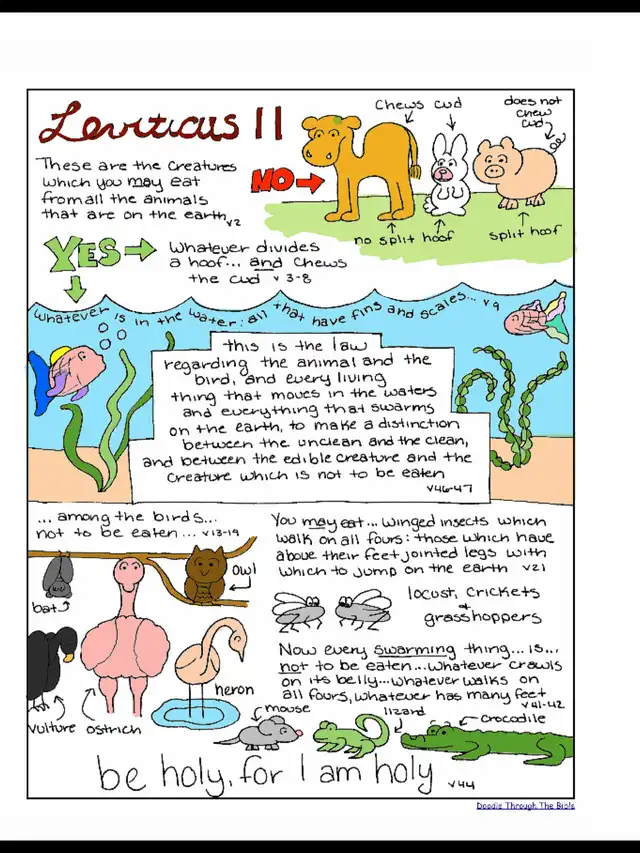 Leviticus 11
These are the creatures
which you may eat
from all the animals
that are on the earth v2
NO
chews cud
does not
chew
cud
no split hoof
split hoof
YES
whatever divides
a hoof... and chews
the cud v 3-8
whatever is in the water: all that have fins and scales... v9
this is the law
regarding the animal and the
bird, and every living
thing that moves in the waters
and everything that swarms
on the earth, to make a distinction
between the unclean and the clean,
and between the edible creature and the
creature which is not to be eaten
v46-47
... among the birds...
not to be eaten... v13-19
bat
owl
vulture
ostrich
heron
You may eat... winged insects which
walk on all fours: those which have
above their feet jointed legs with
which to jump on the earth v21
locust, crickets
+
grasshoppers
Now every swarming thing... is...
not to be eaten... whatever crawls
on its belly... whatever walks on
all fours, whatever has many feet
v41-42
mouse
lizard
crocodile
be holy, for I am holy v44
Doodle Through The Bible